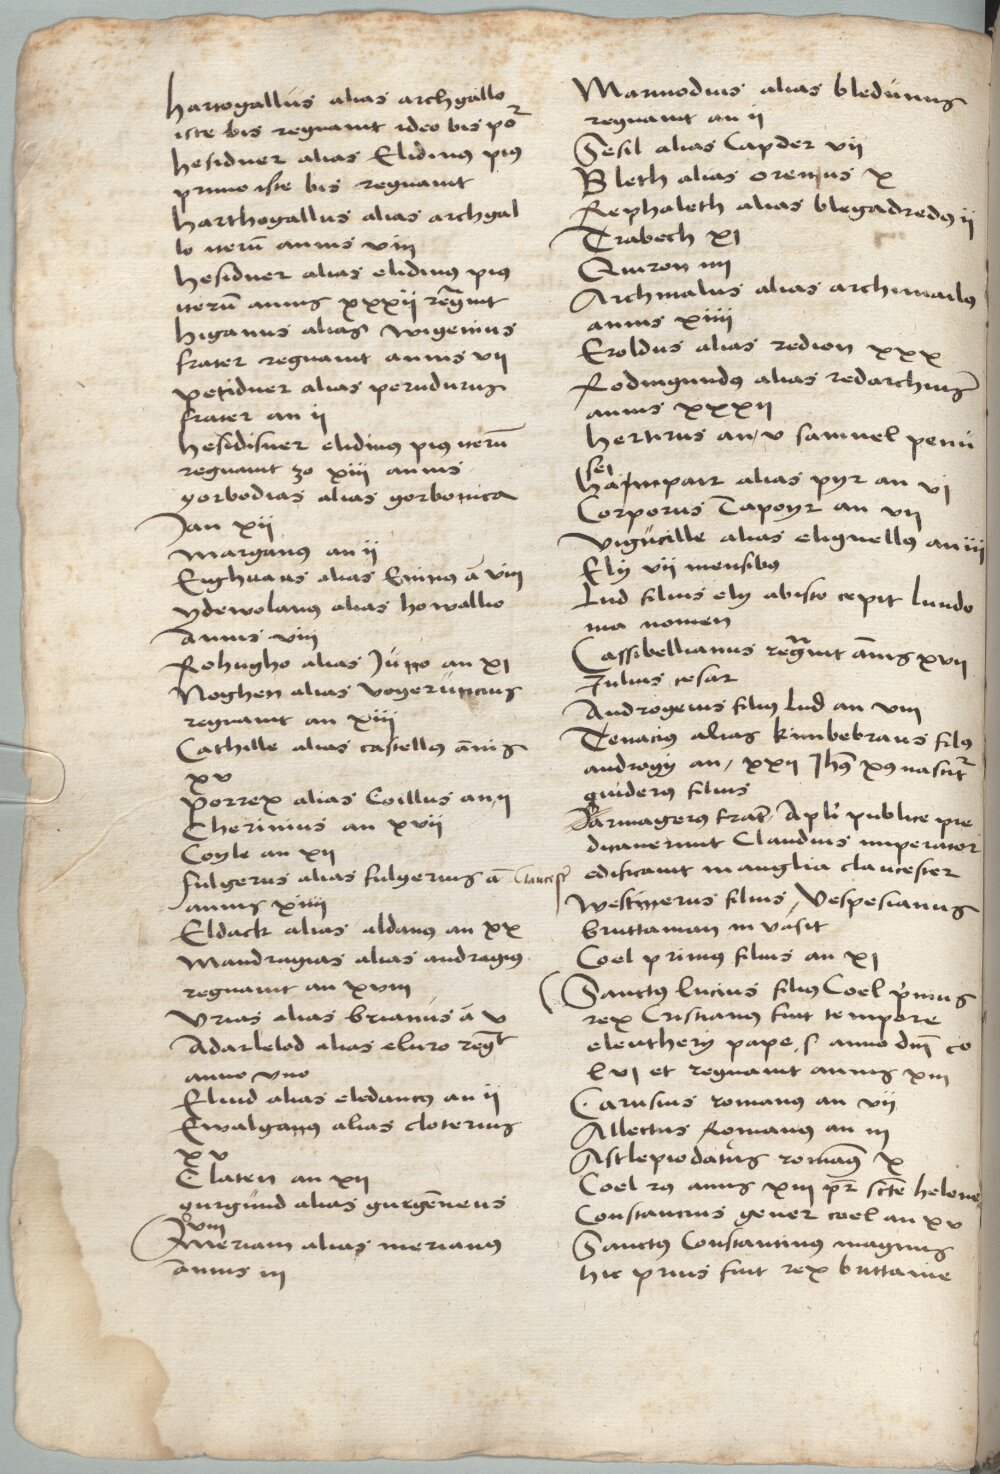 hartogallus alias archgallo
iste bis regnauit ideo bis por
hesiduer alias Elidinus pius
primo iste bis regnauit
harthogallus alias archgal
lo iterū annis viij
hesiduer alias elidinus pius
iterū annis xxxij regnauit
higanus alias wigenius
frater regnauit annis vij
petiduer alias perudurus
frater an ij
hesidisuer elidinus pius iterū
regnauit 3o xiij annis
gorbodias alias gorbonica
Jan xij
marganus an ij
Eighuaus alias Eninus ā viij
ydewolanus alias howallio
annis viij
Rohugho alias Juno an xj
Noghen alias vogeruncius
regnauit an xiij
Cathille alias castellus ānis
xv
porrex alias Coillus an ij
Cherinius an xvij
Coyle an xij
fulgerus alias fulgerius ā
annis xiiij
Eldack alias aldanus an xx
mandragias alias andragius
regnauit an xviij
Vrias alias brianus ā v
Adarlelod alias eluro reg
anno vno
Eliud alias eledancus an ij
Ewalganus alias cloterius
xv
Claten an xij
gurgund alias gurgēneus
viij
meriam alias merianus
annis iij
Marmodius alias bledunus
regnauit an ij
Sesil alias Capder vij
Bleth alias orenius x
Rephaleth alias blegadredus ij
Trabech xj
Quiron iiij
Archmalus alias archimailus
annis xiiij
Eroldus alias redion xxx
Rodingundus alias redarchius
annis xxxij
hertirus an v samuel penu
sel
hampair alias pyr an vj
Corporus Capoyr an vij
vigucille alias eliguellus an iij
Ely vij mensibus
Lud filius ely abisto cepit lundo
nia nomen
Cassibellianus regnauit ānis xvij
Julius cesar
Androgeius filius lud an viij
Tenacius alias kimbebraus filius
androgij an xxij Jhs xps nascitr
guiderus filius
Daruiagerus frater Apli publice pre
dicauerunt Claudius imperator
claucestr
edificauit in anglia claucester
westmerus filius Vespesianus
bruttaniam in vasit
Coel primus filius an xj
Sanctus lucius filius Coel primus
rex Cristianus fuit tempore
eleutherij pape s anno dni co
lvj et regnauit annis xiij
Carusius romanus an vij
Allectus Romanus an iij
Asclepiodatus romanus x
Coel rex annis xiij pr scte helene
Constancius gener coel an xv
Sanctus Constantinus magnus
hic prius fuit rex brittanie